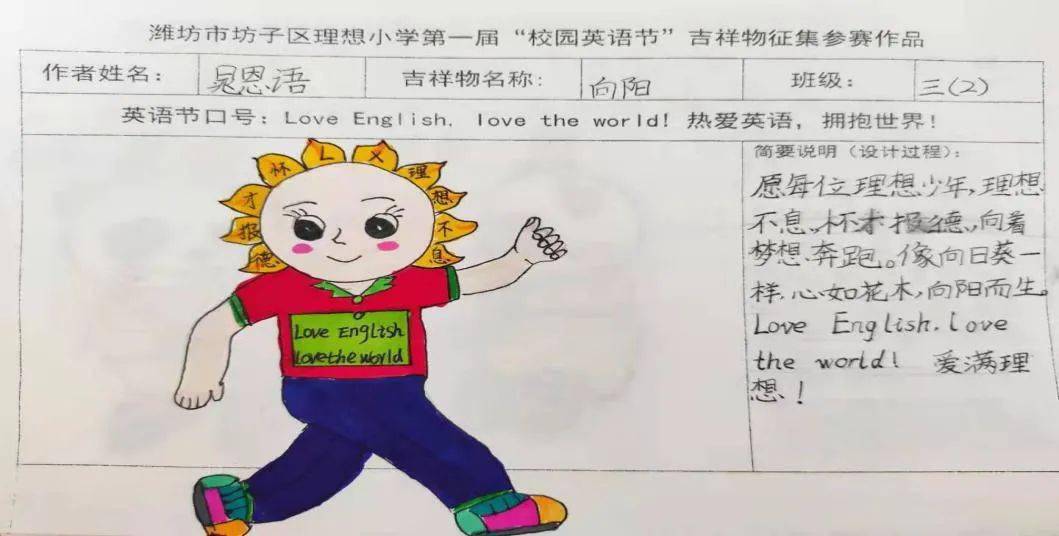 潍坊市坊子区理想小学第一届“校园英语节”吉祥物征集参赛作品
作者姓名： 晁恩语 吉祥物名称: 向阳 班级： 三(2)
英语节口号：Love English, love the world! 热爱英语，拥抱世界！
德报才怀乂理想不息
Love English
Love the world
简要说明（设计过程）：
愿每位理想少年,理想
不息,怀才报德,向着
梦想奔跑。像向日葵一
样,心如花木,向阳而生。
Love English.love
the world! 爱满理
想!